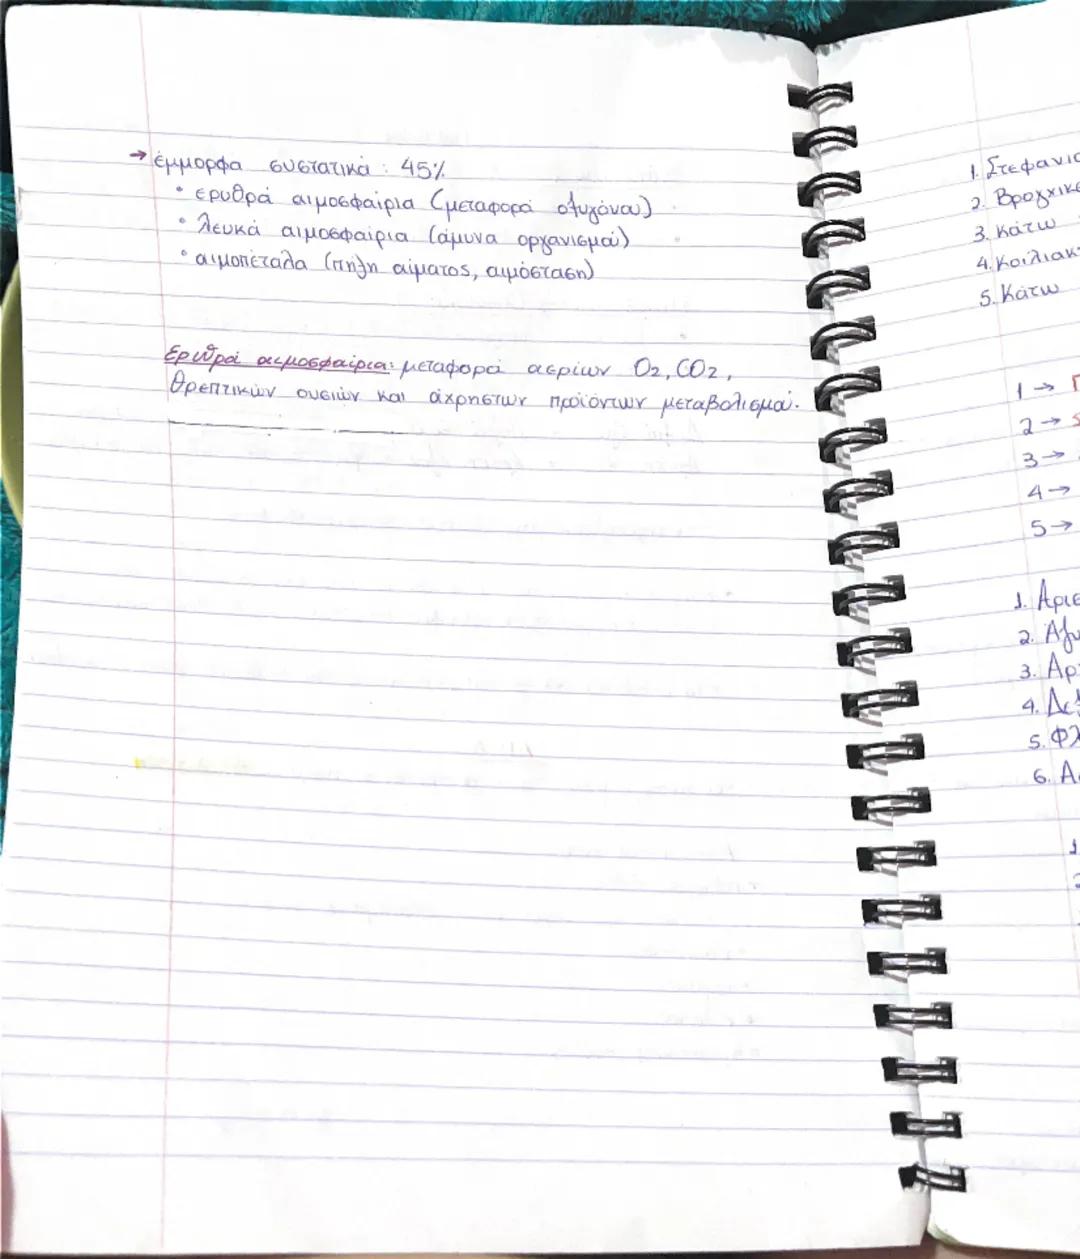 → έμμορφα συστατικά : 45%
• ερυθρά αιμοσφαίρια (μεταφορά οξυγόνου)
• λευκά αιμοσφαίρια (άμυνα οργανισμού)
• αιμοπετάλα (πήξη αίματος, αιμόσταση)
Ερυθρά αιμοσφαίρια: μεταφορά αερίων O2, CO2,
θρεπτικών ουσιών και άχρηστων προϊόντων μεταβολισμού.
1. Στεφανιο
2. Βρογχικε
3. Κάτω
4. Κοιλιακ
5. Κάτω
1 →
2 →
3 →
4 →
5 →
1. Αρισ
2. Αζυ
3. Αρ
4. Δεξ
5. Φλ
6. Α
1
2